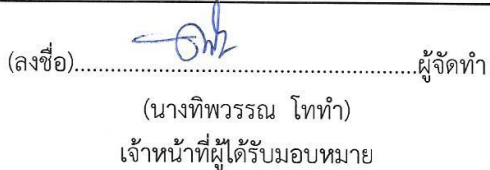 (ลงชื่อ)....................................................ผู้จัดทำ
(นางทิพวรรณ โททำ)
เจ้าหน้าที่ผู้ได้รับมอบหมาย